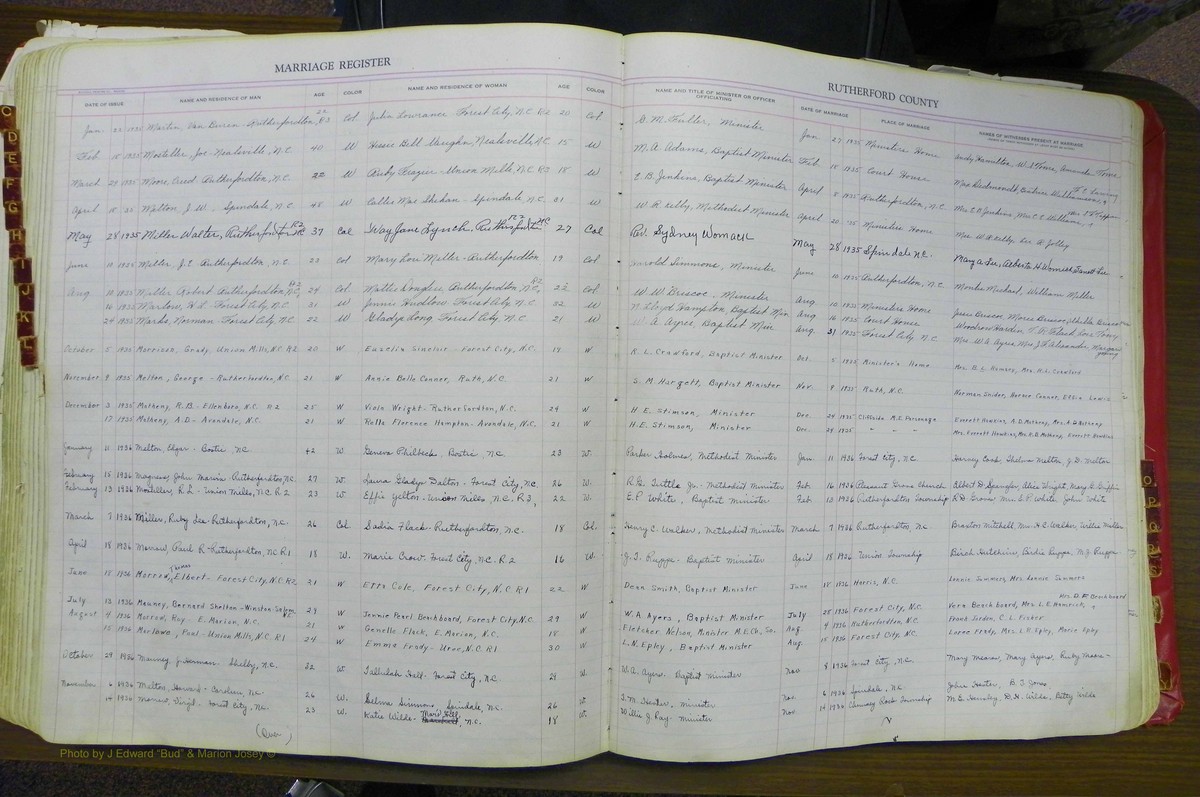 MARRIAGE REGISTER
RUTHERFORD COUNTY
DATE OF ISSUE NAME AND RESIDENCE OF MAN AGE COLOR NAME AND RESIDENCE OF WOMAN AGE COLOR NAME AND TITLE OF MINISTER OR OFFICER OFFICIATING DATE OF MARRIAGE PLACE OF MARRIAGE NAMES OF WITNESSES PRESENT AT MARRIAGE
Jan. 1935 Martin, Van Buren - Rutherfordton, R3 22 Col Julia Lowrance Forest City, N.C. R2 20 Col C. M. Fuller, Minister Jan 27 1935 Ministers Home Andy Hamilton, W. J.
Feb 15 1935 Mosteller, Joe - Nealsville, N.C. 40 W Hessie Bell Vaughn, Nealsville, N.C. 15 W M. A. Adams, Baptist Minister Feb 15 1935 Court House Max
March 1935 Moore, Creed - Rutherfordton, N.C. 22 W Ruby Frazier - Union Mills, N.C. R2 18 W C. B. Jenkins, Baptist Minister April 8 1935 Rutherfordton, N.C. Mrs C. B. Jenkins, Mrs. C. C. Williams,
April 15 35 Melton, J. W. Spindale, N.C. 45 W Callie Mae Shehan - Spindale, N.C. W W. R. Kelly, Methodist Minister April 20 35 Ministers Home Mrs. W. R. Kelly, Jolley
May 28 1935 Miller Walter, Rutherfordton R2 37 Col Way Jane Lynch, Rutherfordton R2 N.C. 27 Col Rev. Sydney Womack May 28 1935 Spindale N.C. Mary a Lee, Alberta H Womick
June 10 1935 Miller, J. C. Rutherfordton, N.C. 23 Col Mary Lou Miller - Rutherfordton 19 Col Harold Simmons, Minister June 10 1935 Rutherfordton, N.C. Michael, William Miller
Aug. 10 1935 Miller, Robert Rutherfordton, N.C. R2 24 Col Mattie Rutherfordton, N.C. R2 22 Col W. W. Briscoe, Minister Aug 10 1935 Ministers Home Jesse Briscoe, Marie Briscoe,
16 1935 Marlow, H. L. Forest City, N.C. 31 W Jennie Hudlow, Forest City, N.C. W N. Lloyd Hampton, Baptist Min Aug 16 1935 Court House Woodrow Hardin,
24 1935 Marks, Norman - Forest City N.C. 22 W Gladys Long Forest City, N.C. 21 W W. A. Ayers, Baptist Min Aug. 31 1935 Forest City, N.C. Mrs. W. A. Ayers, Mrs. J. H. Alexander, Margaret young
October 5 1935 Morrison, Grady, Union Mills, N.C. R2 20 W Euzelia Sinclair. Forest City, N.C. 19 W K. L. Crawford, Baptist Minister Oct. 5 1935 Minister's Home Mrs. K. L. Crawford
November 9 1935 Melton, George - Rutherfordton, N.C. 21 W Annie Belle Conner, Ruth, N.C. 21 W S. M. Hargett, Baptist Minister Nov. 9 1935 Ruth, N.C. Norman Snider, Horace Conner, Effie Lewis
December 3 1935 Matheny, R. B. - Ellenboro, N.C. R2 25 W Viola Wright - Rutherfordton, N.C. 24 W H. E. Stimson, Minister Dec. 24 1935 Cliffside M.E. Parsonage Everett Hawkins, A. D. Matheny, Mrs. A. D. Matheny
17 1935 Matheny, A. D. - Avondale, N.C. 21 W Rella Florence Hampton - Avondale, N.C. 21 W H. E. Stimson, Minister Dec. 24 1935 " " Mrs. Everett Hawkins, Mrs. R. B. Matheny, Everett Hawkins
January 11 1936 Melton, Edgar - Bostic, N.C. 42 W Geneva Philbeck, Bostic, N.C. 23 W. Parker Holmes, Methodist Minister Jan. 11 1936 Forest City, N.C. Harvey Cook, Thelma Melton, J. D. Melton
February 15 1936 Magness, John Marvin - Rutherfordton, N.C. 27 W. Laura Gladys Dalton - Forest City, N.C. 26 W. R. G. Tuttle Jr. - Methodist Minister Feb 16 1936 Pleasant Grove Church Albert D. Spangler, Alva Wright, Mary E. Griffin
February 13 1936 Mosteller, R. L. - Union Mills, N.C. R2 23 W. Effie Yelton - Union Mills, N.C. R3, 22 W. E. P. White, Baptist Minister Feb 13 1936 Rutherfordton Township R. D. Grose, Mrs. E. P. White, John White
March 7 1936 Miller, Ruby Lee - Rutherfordton, N.C. 26 Col. Sadia Flack - Rutherfordton, N.C. 18 Col. Henry C. Walker, Methodist Minister March 7 1936 Rutherfordton N.C. Braxton Mitchell, Mrs. H. C. Walker, Willie Miller
April 18 1936 Morrow, Paul R. - Rutherfordton, N.C. R1 18 W. Marie Crow. Forest City, N.C. R. 2 16 W. J. T. Ruppe - Baptist Minister April 18 1936 Union Township Birch Hutchins, Birdie Ruppe, M. J. Ruppe
June 15 1936 Morrow, Thomas Elbert - Forest City, N.C. R2 21 W Etta Cole, Forest City, N.C. R1 22 W Dean Smith, Baptist Minister June 15 1936 Harris, N.C. Lonnie Sammons, Mrs. Lonnie Sammons
July 13 1936 Mauney, Bernard Shelton - Winston-Salem N.C. 29 W Jennie Pearl Beachboard, Forest City, N.C. 29 W W. A. Ayers, Baptist Minister July 25 1936 Forest City, N.C. Vern Beachboard, Mrs. L. E. Hamrick, Mrs. D. F. Beachboard
August 4 1936 Morrow, Ray - E. Marion, N.C. 21 W Genelle Flack, E. Marion, N.C. 18 W Fletcher Nelson, Minister M.E.Ch. So. Aug. 4 1936 Rutherfordton, N.C. Frank Jordon, C. L. Fisher
15 1936 Marlowe, Paul - Union Mills, N.C. R1 24 W Emma Frady - Uree, N.C. R1 30 W L. N. Epley, Baptist Minister Aug 15 1936 Forest City, N.C. Loree Frady, Mrs. L. N. Epley, Marie Epley
October 29 1936 Mauney, J. Herman - Shelby, N.C. 22 W. Tallulah Falls - Forest City, N.C. 29 W. W. A. Ayers - Baptist Minister Nov 8 1936 Forest City, N.C. Mary Moore, Mary Ayers, Ruby Moore
November 6 1936 Melton, Howard - Caroleen, N.C. 26 W. Selma Simmons, Spindale, N.C. 26 W. T. M. Hester, minister Nov. 6 1936 Spindale, N.C. John Hester, B. T. Jones
14 1936 Morrow, Virgil - Forest City, N.C. 23 W. Katie Wills - Mars Hill, N.C. 18 W. Willie G. Ray minister Nov 14 1936 Chimney Rock Township M. E. Hensley, D. H. Wills, Betty Wills
(Over)
C
D
E
F
G
H
I
J
K
L
O
P
Q
R
S
Y
Photo by J Edward "Bud" & Marion Josey ©